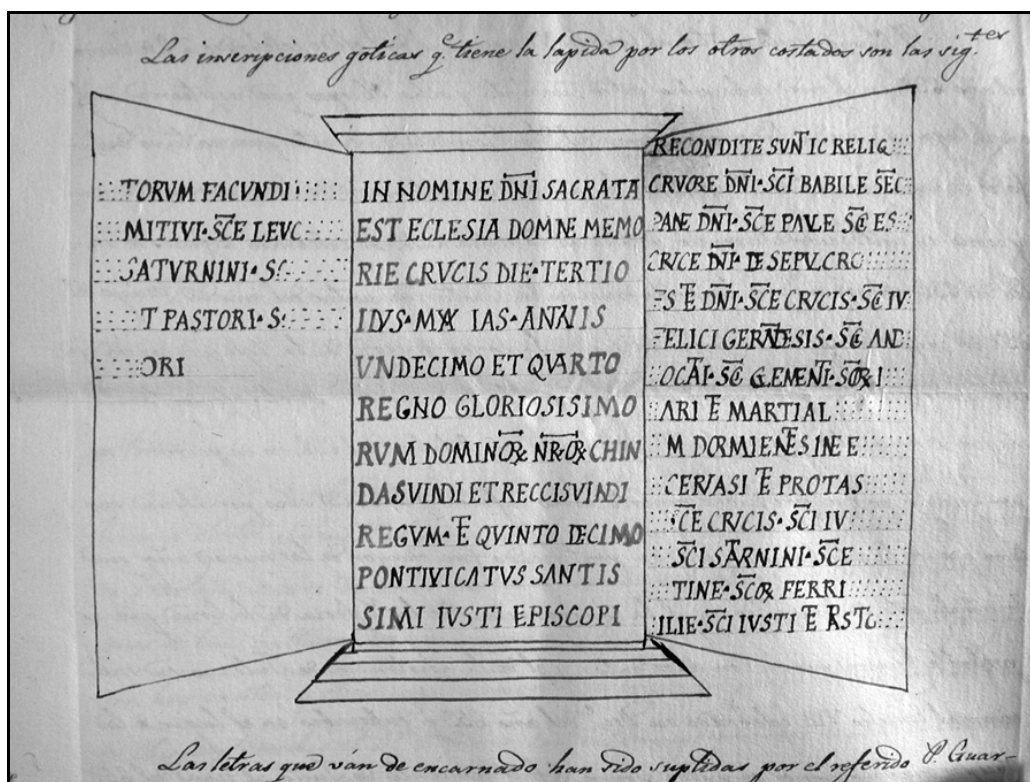 Las inscripciones goticas q.e tiene la lapida por los otros costados son las sig.tes
TORVM FACVNDI
MITIVI·SC̅E LEVC
SATVRNINI·S
T PASTORI·S
ORI
IN NOMINE DN̅I SACRATA
EST ECLESIA DOMNE MEMO
RIE CRVCIS DIE·TERTIO
IDVS·
IAS·ANNIS
VNDECIMO ET QVARTO
REGNO GLORIOSISIMO
RVM DOMINOR̅ NR̅OR̅ CHIN
DASVINDI ET RECCISVINDI
REGVM·E̅ QVINTO DECIMO
PONTIVICATVS SANTIS
SIMI IVSTI EPISCOPI
RECONDITE SVN̅T IC RELIQ
CRVORE DN̅I·SC̅I BABILE SEC
PANE DN̅I·SC̅E PAVLE SC̅E ES
CRVCE DN̅I·DE SEPVLCRO
ES E̅ DN̅I·SC̅E CRVCIS·SC̅E IV
FELICI GERADESIS·SC̅E AND
OCA̅I·SC̅E GEMENI̅·SC̅OR I
ARI E̅ MARTIAL
M DORMIENTES INE E
CERIASI E̅ PROTAS
CE CRVCIS·SC̅I IV
SC̅I SA̅RNINI·SC̅E
TINE·SC̅OR FERRI
ILIE·SC̅I IVSTI E̅
Las letras que ván de encarnado han sido suplidas por el referido P. Guar-